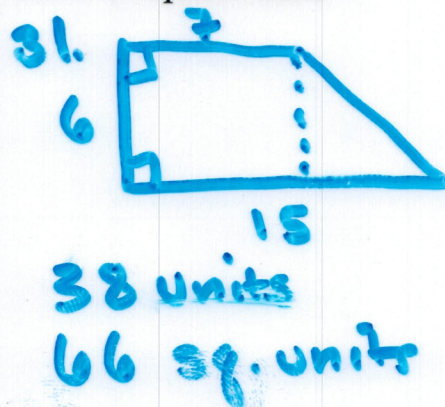 31.
7
6
15
38 units
66 sq. units